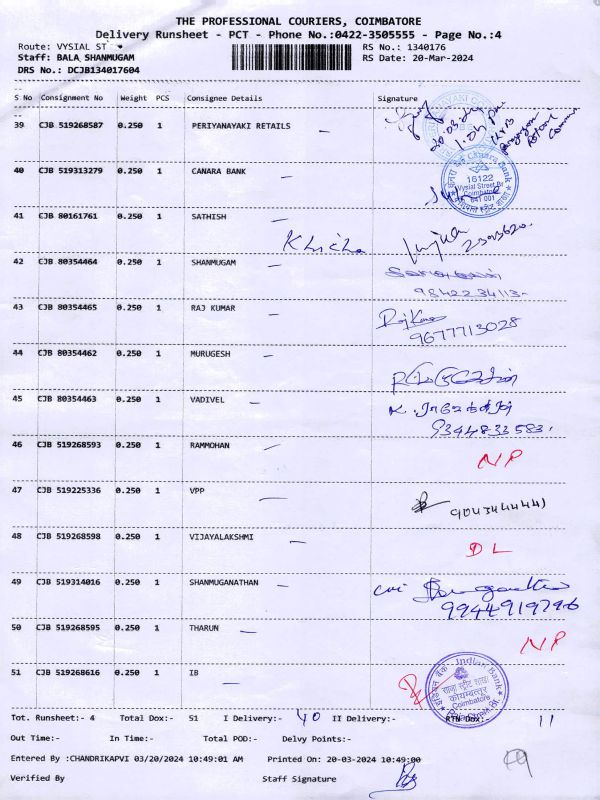 THE PROFESSIONAL COURIERS, COIMBATORE
Delivery Runsheet - PCT - Phone No.:0422-3505555 - Page No.:4
Route: VYSIAL ST RS No.: 1340176
Staff: BALA SHANMUGAM RS Date: 20-Mar-2024
DRS No.: DCJB134017604
S No Consignment No Weight PCS Consignee Details Signature
39 CJB 519268587 0.250 1 PERIYANAYAKI RETAILS
40 CJB 519313279 0.250 1 CANARA BANK
Canara Bank
16122
Vysial Street Br
Coimbatore
641 001
41 CJB 80161761 0.250 1 SATHISH
42 CJB 80354464 0.250 1 SHANMUGAM
9842234113
43 CJB 80354465 0.250 1 RAJ KUMAR
Raj Kumar
9677713028
44 CJB 80354462 0.250 1 MURUGESH
45 CJB 80354463 0.250 1 VADIVEL
93448 33583
46 CJB 519268593 0.250 1 RAMMOHAN NP
47 CJB 519225336 0.250 1 VPP
48 CJB 519268598 0.250 1 VIJAYALAKSHMI DL
49 CJB 519314016 0.250 1 SHANMUGANATHAN
9944919796
50 CJB 519268595 0.250 1 THARUN NP
51 CJB 519268616 0.250 1 IB
Indian Bank
कोयम्बत्तूर
Coimbatore
Tot. Runsheet:- 4 Total Dox:- 51 I Delivery:- 40 II Delivery:- RTN Dox:- 11
Out Time:- In Time:- Total POD:- Delvy Points:-
Entered By :CHANDRIKAPVI 03/20/2024 10:49:01 AM Printed On: 20-03-2024 10:49:00
Verified By Staff Signature